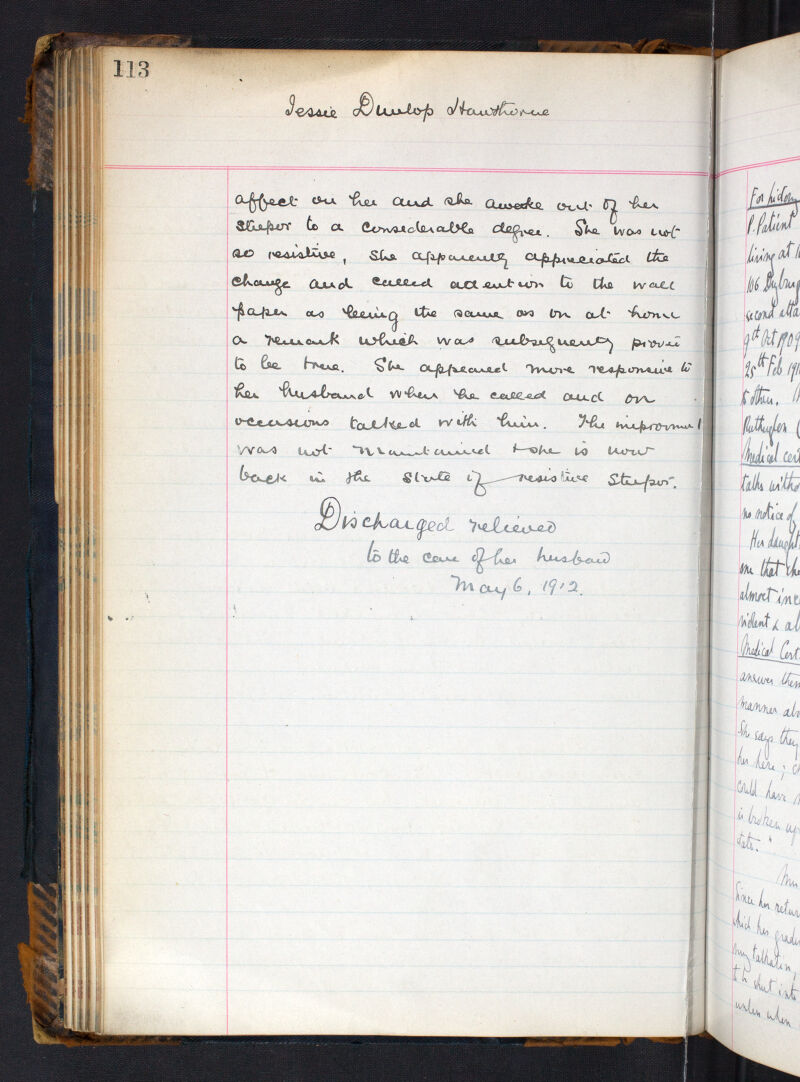 113
Jessie Dunlop Hawthorne
affect on her and she awoke out of her
stupor to a considerable degree. She was not
so resistive, she apparently appreciated the
change and called attention to the wall
paper as being the same as on at home
a remark which was subsequently proved
to be true. She appeared more responsive to
her husband when he called and on
occasions talked with him. The improvment
was not maintained & she is now
back in the state of resistive stupor.
Discharged relieved
to the care of her husband
May 6, 1912.
For history
P. Patient
living at
106
second atta
9th Oct 1909
25th Feb 191
to others.
Medical cert
talks witho
no notice of
Her daught
me that she
almost inc
violent & al
Medical Cert.
answer them
manner abo
She says they
her here;
could have
is broken up
state."
Since her retur
which has gradu
to be shut into
unless when